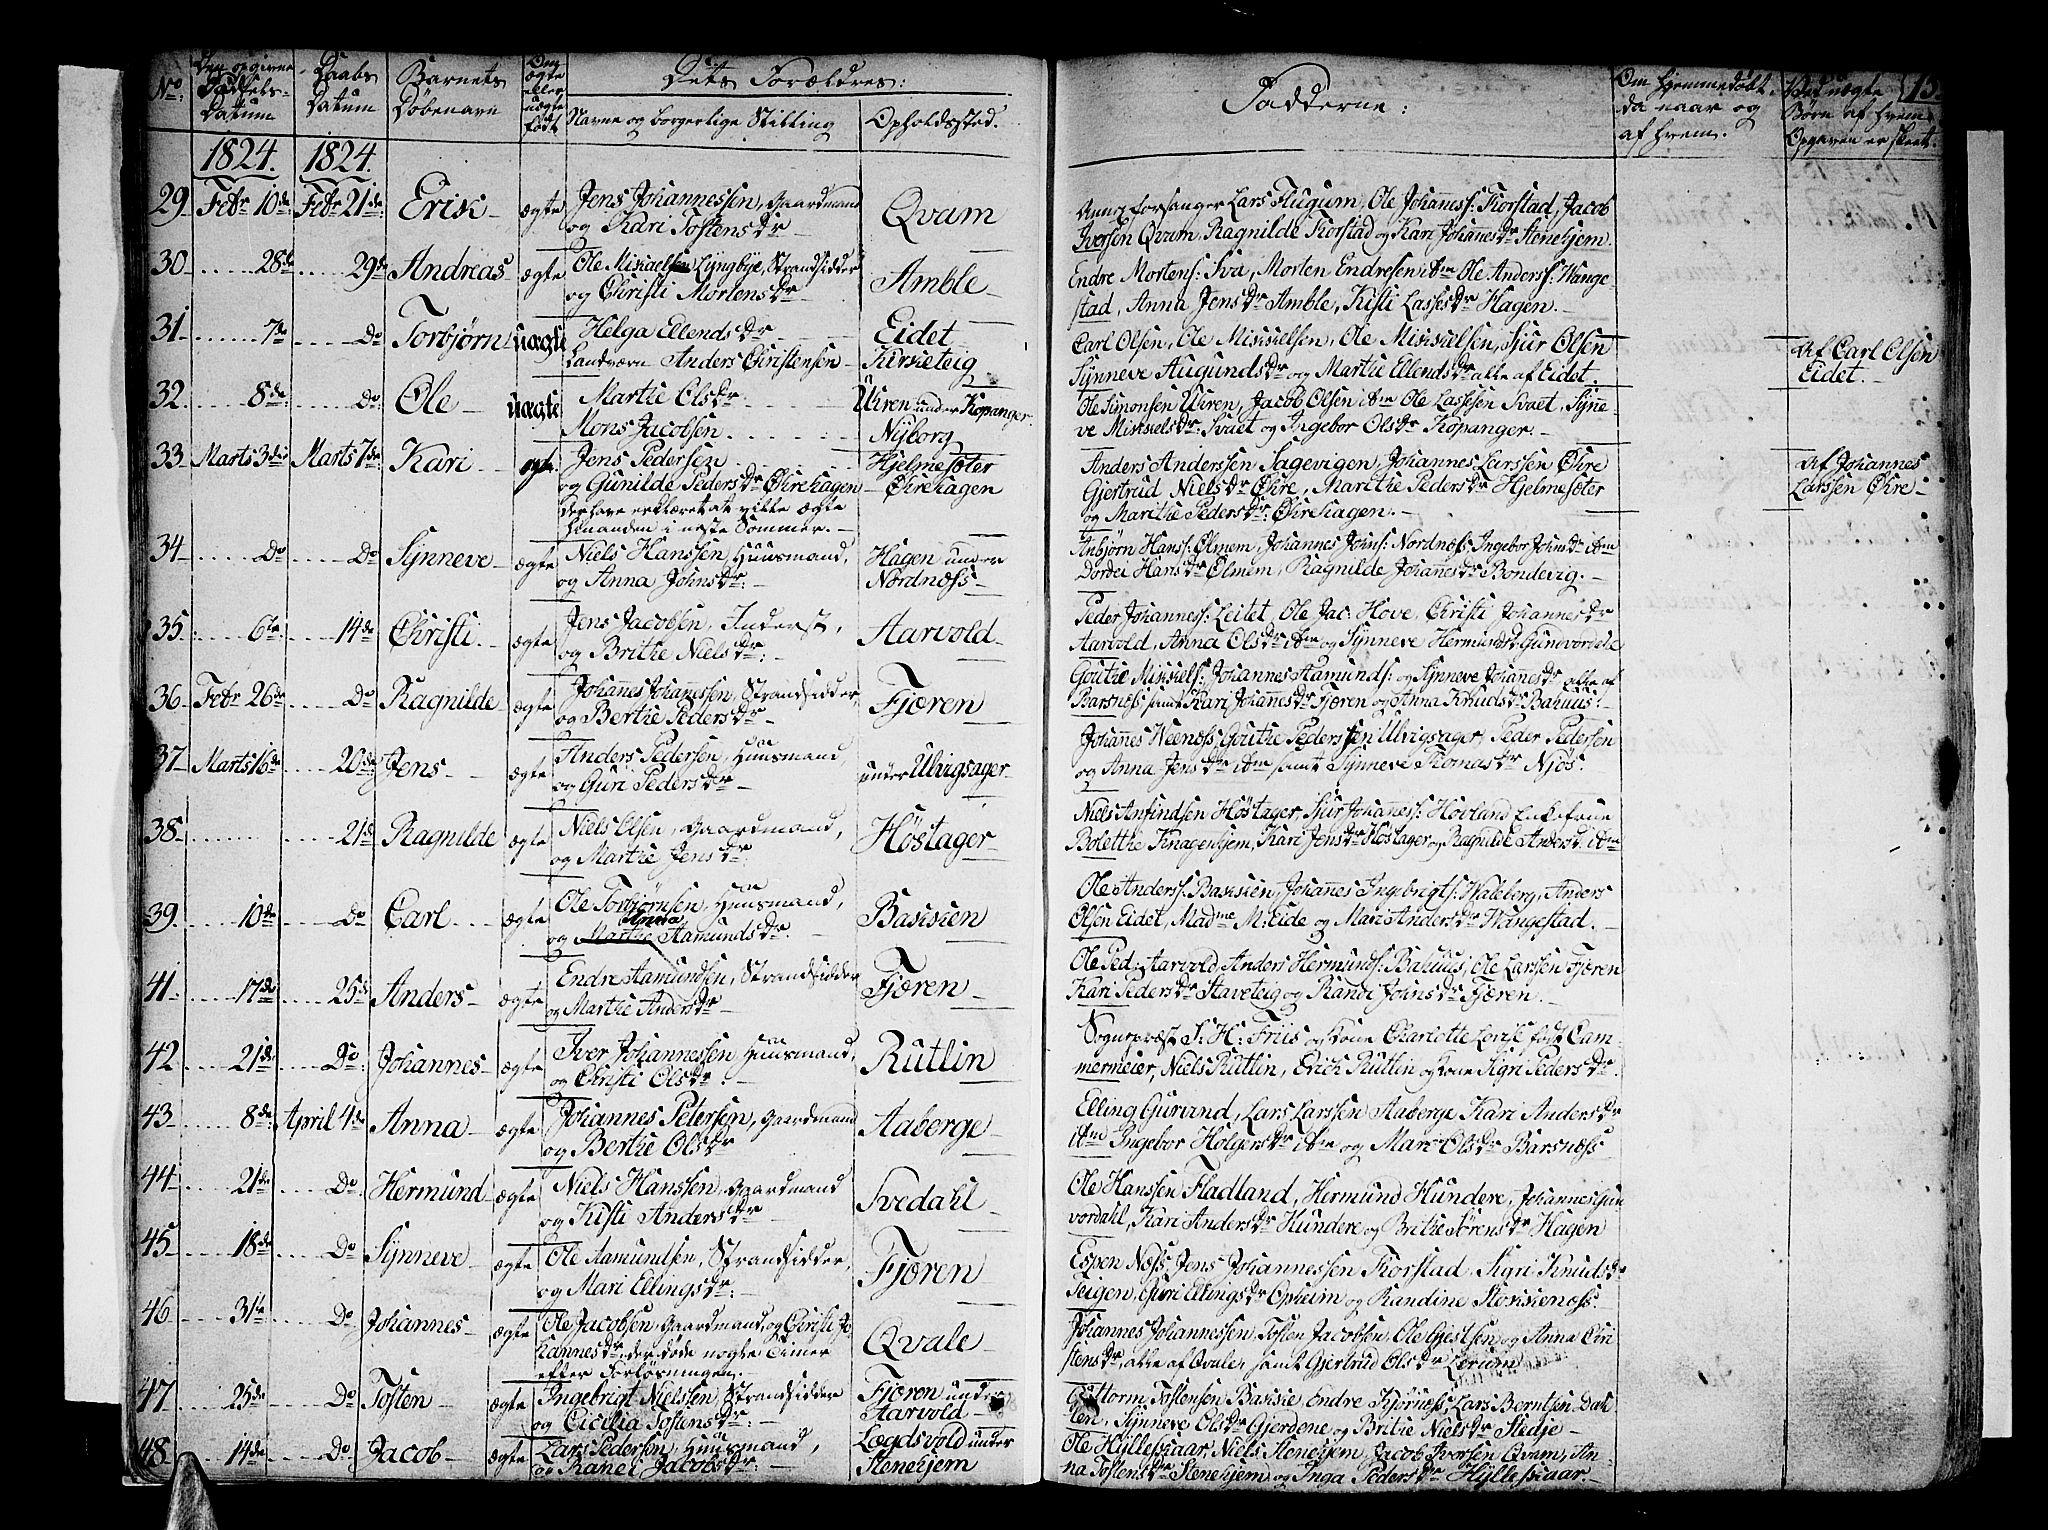 No: Den opgivne Fødsels-Datum Daabs Datum Barnets Døbenavn Om ægte eller uægte født Dets Forældres: Navne og borgerlige Stilling Opholdssted. Fadderne: Om hjemmedøbt da naar og af hvem. Ved uægte Børn af hvem Opgaven er skeet.
1824. 1824.
29 Febr 10de Febr 21de Erik ægte Jens Johannessen, Gaardmand Qvam
og Kari Tostensdr
Lars Flugum, Ole Johaness: Fiorstad, Jacob
Iversen Qvam, Ragnilde Fiorstad og Kari Johannesdr Stenehjem.
30 28de 29de Andreas ægte Ole Mikaelsen Lyngbye, Strandsidder Amble
og Christi Mortensdr
Endre Mortens: Sva, Morten Endresen ibm Ole Anderss: Wange-
stad, Anna Jensdr Amble, Kisti Lassesdr Hagen.
31 7de Do Torbjørn uægte Helga Ellendsdr Eidet
Landværn Anders Christensen Kirketeig
Carl Olsen, Ole Mikkelsen, Ole Mikkelsen, Sjur Olsen
Synneve Augundsdr og Marthe Ellendsdr alle af Eidet.
Af Carl Olsen
Eidet.
32 8de Do Ole uægte Marthe Olsdr Wiren under Kopanger
Mons Jacobsen Nyborg
Ole Simonsen Wiren, Jacob Olsen ibm Ole Lassesen Svaet, Synne-
ve Mikkelsdr: Svaet og Ingebor Olsdr Kopanger.
33 Marts 3de Marts 7de Kari ægte Jens Pedersen Hjelmesøter
og Gunilde Pedersdr Øhrehagen Øhrehagen
der have erklæret at ville ægte
hinanden i næste Sommer.
Anders Anderssen Sagevigen, Johannes Larssen Øhre
Gjertrud Nielsdr Øhre, Marithe Pedersdr Hjelmesøter
og Marithe Pedersdr: Øhrehagen.
Af Johannes
Larssen Øhre
34 Do Do Synneve ægte Niels Hanssen, Huusmand, Hagen under
og Anna Johnsdr: Nordnæss
Anbjørn Hanss: Ølmem, Johannes Johns: Nordnæss, Ingebor Johnsdr ibm
Dordei Hansdr Ølmem, Ragnilde Johanesdr Bondevig.
35 6te 14de Christi ægte Jens Jacobsen, Inderst, Aarvold
og Brithe Nielsdr:
Peder Johaness: Leitet, Ole Jac: Hove, Christi Johannesdr
Aarvold, Anna Olsdr ibm og Synneve Hermundsd: Gundvordahl
36 Febr 26de Do Ragnilde ægte Johanes Johanessen, Strandsidder, Fjæren
og Berthe Pedersdr
Gouthe Mikkels: Johannes Aamunds: og Synneve Johanesdr alle af
Barsnæss samt Kari Johannesdr Fjæren og Anna Knudsdr Bahuus.
37 Marts 16de 20de Jens ægte Anders Pedersen, Huusmand, under Ulvigsager
og Guri Pedersdr
Johannes Weenæss, Gouthe Pederssen Ulvigsager, Peder Pedersen
og Anna Jensdr ibm samt Synneve Thomasdr Njøs.
38 21de Ragnilde ægte Niels Olsen, Gaardmand, Høstager
og Marthe Jensdr:
Niels Anfindsen Høstager, Sjur Johaness: Hovland Enkefrue
Bolethe Knagenhjem, Kari Jensdr Høstager og Ragnilde Andersd: ibm
39. 10de Do Carl ægte Ole Torbjørnsen, Huusmand, Bakken
Anna
og Marthe Aamundsdr.
Ole Anderss: Bakken, Johannes Ingebrigts: Waleberg, Anders
Olsen Eidet, Madme M: Eide og Mari Andersdr Wangestad.
41 17de 25de Anders ægte Endre Aamundsen, Strandsidder Fjæren
og Marthe Andersdr
Ole Ped: Aarvold, Anders Hermunds: Bahuus, Ole Larssen Fjæren
Kari Pedersdr Staveteig og Randi Johnsdr Fjæren.
42 21de Do Johannes ægte Iver Johannessen Huusmand, Rutlin
og Christi Olsdr:
Sognepræst S: H: Friis og Kone Charlotte født Cam-
mermeier, Niels Rutlin, Erich Rutlin og Kone Sigri Pedersdr.
43 8de April 4de Anna ægte Johannes Petersen, Gaardmand Aaberge
og Berthe Olsdr
Elling Gurvind, Lars Larssen Aaberge Kari Andersdr
ibm Ingebor Holgersdr ibm og Mari Olsdr Barsnæss
44 21de Do Hermund ægte Niels Hanssen, Gaardmand Svedahl
og Kisti Andersdr
Ole Hanssen Fladland, Hermund Hundere, Johannes Gun
vordahl, Kari Andersdr Hundere og Brithe Sørensdr Hagen
45 18de Do Synneve ægte Ole Aamundsen, Strandsidder, Fjæren
og Mari Ellingsdr:
Espen Næss, Jens Johannessen Fiorstad, Sigri Knudsdr
Teigen, Guri Ellingsdr Opheim og Randine Stokkenæss.
46 31te Do Johannes ægte Ole Jacobsen, Gaardmand og Christi Jo Qvale
hannesdr, der døde nogle Timer
efter Forløsningen.
Johannes Johannessen, Tosten Jacobsen, Ole Gjestsen og Anna Chri
stensdr, alle af Qvale, samt Gjertrud Olsdr Lerum
47 25de Do Tosten ægte Ingebrigt Nielssen, Strandsidder Fjæren under
og Cicilia Tostensdr: Aarvold
Guttorm Tostensen Bakke Endre Kjørnæs, Lars Berntsen Bak
ken, Synneve Olsdr Gjerdene og Brithe Nielsdr Stedje
48 14de Do Jacob ægte Lars Pedersen, Huusmand, Lægdsvold under
og Ranei Jacobsdr: Stenehjem
Ole Hylleskaar, Niels Stenehjem, Jacob Iversen Qvam, An-
na Tostensdr Stenehjem og Inga Pedersdr Hylleskaar